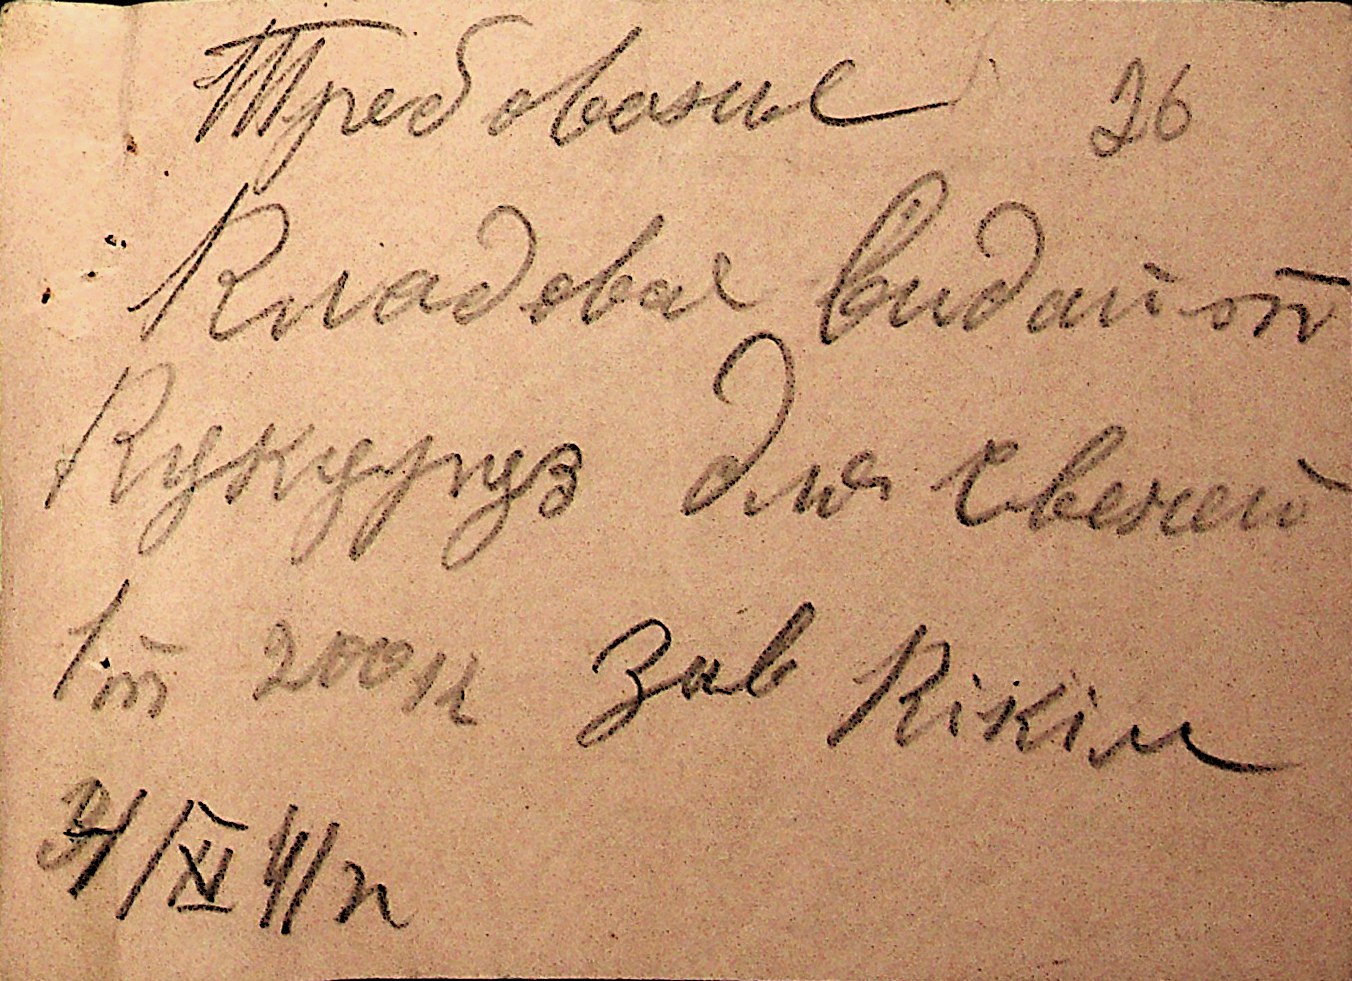 Требование 26
Кладовая видайте
Кукуруз для свеней
1т 200 кл Зав Кікім
31/XI 41/р